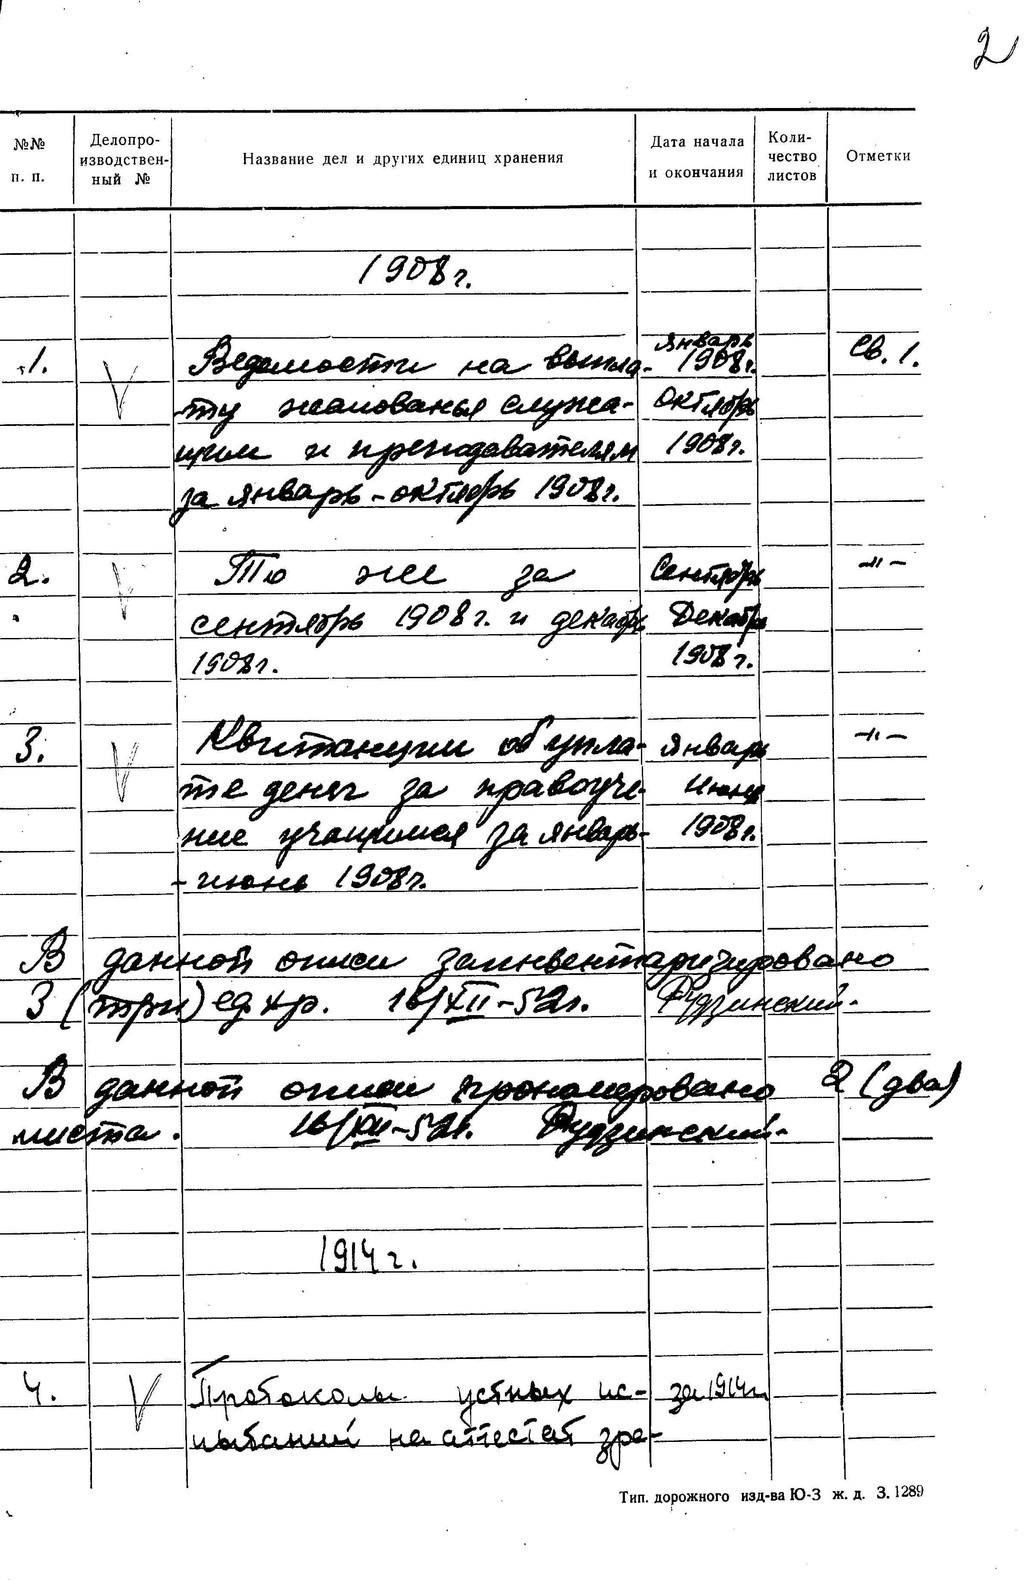 2
№№ п. п. Делопроизводствен-ный № Название дел и других единиц хранения Дата начала и окончания Коли-чество листов Отметки
1908 г.
1. V Ведомости на выпла- Январь 1908 г. Св. 1.
ту жалованья служа- Октябрь
щим и преподавателям 1908 г.
за январь - октябрь 1908 г.
2. V То же за Сентябрь -"-
сентябрь 1908 г. и декабрь Декабрь
1908 г. 1908 г.
3. V Квитанции об упла- Январь -"-
те денег за правоуче- Июнь
ние учащимся за январь- 1908 г.
- июнь 1908 г.
В данной описи заинвентаризировано
3 (три) ед. хр. 16/XII-52 г. Рудзинский.
В данной описи пронумеровано 2 (два)
листа. 16/XII-52 г. Рудзинский.
1914 г.
4. V Протоколы устных ис- за 1914 г.
пытаний на аттестат зре-
Тип. дорожного изд-ва Ю-З ж. д. З. 1289